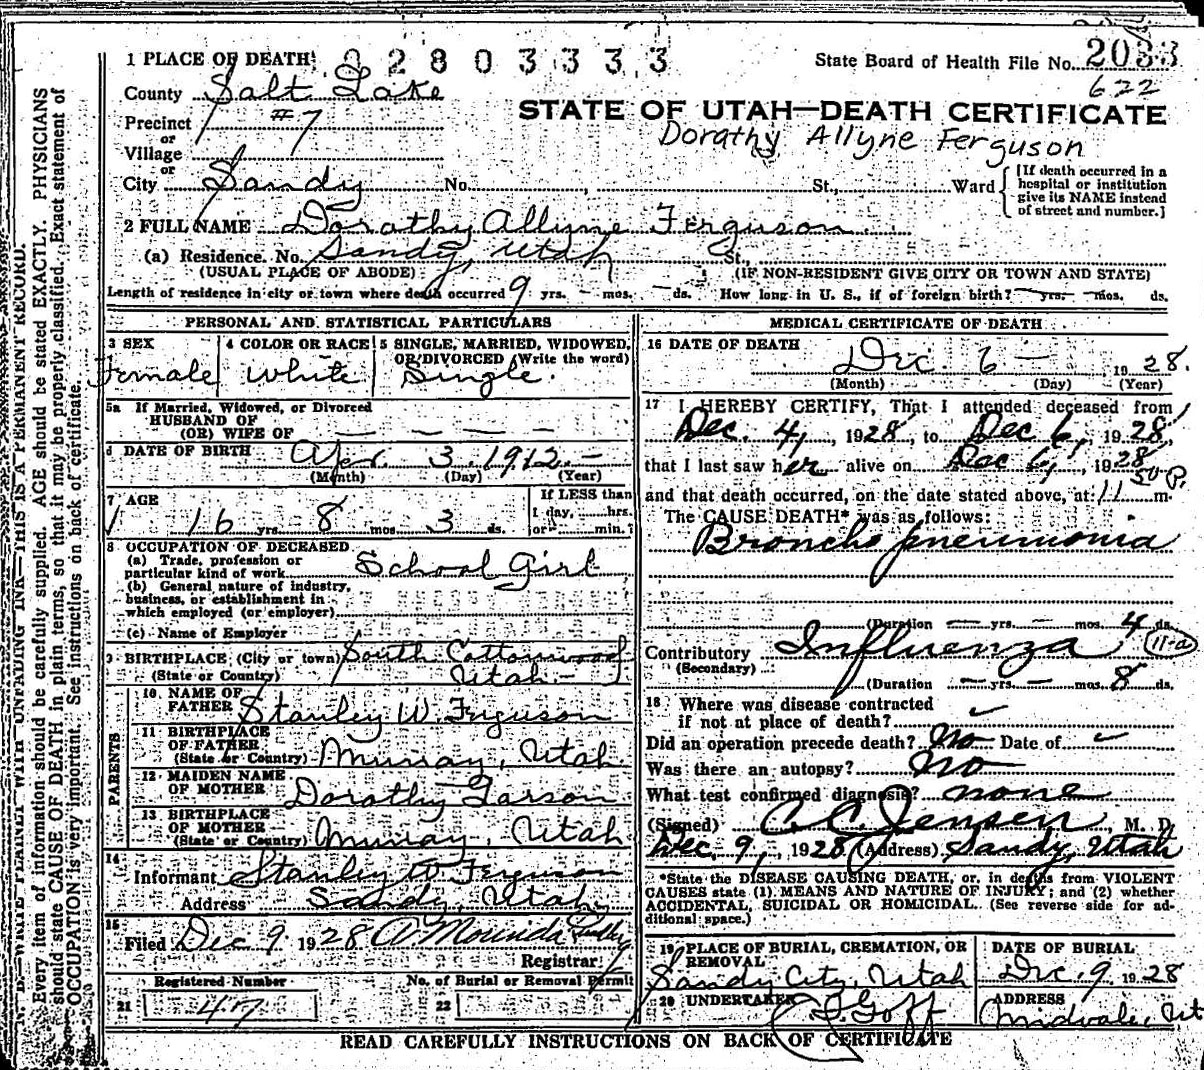 1 PLACE OF DEATH 0 2 8 0 3 3 3 3
State Board of Health File No. 2033
622
County Salt Lake
STATE OF UTAH—DEATH CERTIFICATE
Dorathy Allyne Ferguson
Precinct #7
or
Village
or
City Sandy No. , St., Ward
[If death occurred in a
hospital or institution
give its NAME instead
of street and number.]
2 FULL NAME Dorathy Allyne Ferguson
(a) Residence. No. Sandy, Utah St.,
(USUAL PLACE OF ABODE) (IF NON-RESIDENT GIVE CITY OR TOWN AND STATE)
Length of residence in city or town where death occurred 9 yrs. — mos. — ds. How long in U. S., if of foreign birth? — yrs. — mos. ds.
PERSONAL AND STATISTICAL PARTICULARS
3 SEX
Female
4 COLOR OR RACE
White
5 SINGLE, MARRIED, WIDOWED,
OR DIVORCED (Write the word)
Single.
5a If Married, Widowed, or Divorced
HUSBAND OF
(OR) WIFE OF — — — —
6 DATE OF BIRTH Apr. 3. 1912. —
(Month) (Day) (Year)
7 AGE
16 yrs. 8 mos. 3 ds.
If LESS than
1 day, hrs.
or min.?
8 OCCUPATION OF DECEASED
(a) Trade, profession or
particular kind of work School Girl
(b) General nature of industry,
business, or establishment in
which employed (or employer)
(c) Name of Employer
9 BIRTHPLACE (City or town) South Cottonwood
(State or Country) Utah —
PARENTS
10 NAME OF
FATHER Stanley W. Ferguson
11 BIRTHPLACE
OF FATHER
(State or Country) Murray, Utah
12 MAIDEN NAME
OF MOTHER Dorathy Larson
13 BIRTHPLACE
OF MOTHER
(State or Country) Murray, Utah
14
Informant Stanley W Ferguson
Address Sandy, Utah
15
Filed Dec 9 1928
Registrar
Registered Number
21 47
No. of Burial or Removal Permit
22
MEDICAL CERTIFICATE OF DEATH
16 DATE OF DEATH
Dec. 6 — 1928.
(Month) (Day) (Year)
17 I HEREBY CERTIFY, That I attended deceased from
Dec. 4, 1928, to Dec 6, 1928,
that I last saw her alive on Dec 6, 1928
and that death occurred, on the date stated above, at 11 50 P. m.
The CAUSE DEATH* was as follows:
Broncho pneumonia
(Duration — yrs. — mos. 4 ds.
Contributory Influenza 11-a
(Secondary)
(Duration — yrs. — mos. 8 ds.
18 Where was disease contracted
if not at place of death?
Did an operation precede death? No Date of
Was there an autopsy? No
What test confirmed diagnosis? none
(Signed) C. C. Jensen M. D.
Dec. 9, 1928 (Address) Sandy, Utah
*State the DISEASE CAUSING DEATH, or, in deaths from VIOLENT
CAUSES state (1) MEANS AND NATURE OF INJURY; and (2) whether
ACCIDENTAL, SUICIDAL OR HOMICIDAL. (See reverse side for ad-
ditional space.)
19 PLACE OF BURIAL, CREMATION, OR
REMOVAL
Sandy City, Utah
DATE OF BURIAL
Dec. 9 1928
20 UNDERTAKER
Goff
ADDRESS
Midvale, Ut
READ CAREFULLY INSTRUCTIONS ON BACK OF CERTIFICATE
N. B.—WRITE PLAINLY WITH UNFADING INK—THIS IS A PERMANENT RECORD.
Every item of information should be carefully supplied. AGE should be stated EXACTLY. PHYSICIANS
should state CAUSE OF DEATH in plain terms, so that it may be properly classified. Exact statement of
OCCUPATION is very important. See instructions on back of certificate.